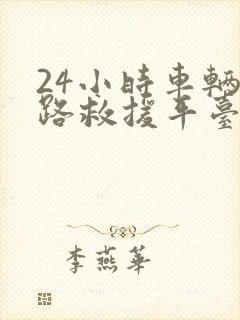 24小時車輛
路救援平臺
李燕華